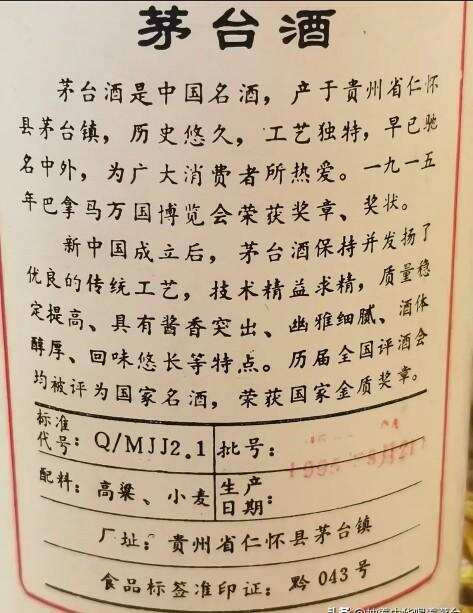 茅台酒
茅台酒是中国名酒，产于贵州省仁怀
县茅台镇，历史悠久，工艺独特，早已驰
名中外，为广大消费者所热爱。一九一五
年巴拿马万国博览会荣获奖章、奖状。
新中国成立后，茅台酒保持并发扬了
优良的传统工艺，技术精益求精，质量稳
定提高、具有酱香突出、幽雅细腻、酒体
醇厚、回味悠长等特点。历届全国评酒会
均被评为国家名酒，荣获国家金质奖章。
标准代号：Q/MJJ2.1 批号：
配料：高粱、小麦 生产日期：
厂址：贵州省仁怀县茅台镇
食品标签准印证：黔043号